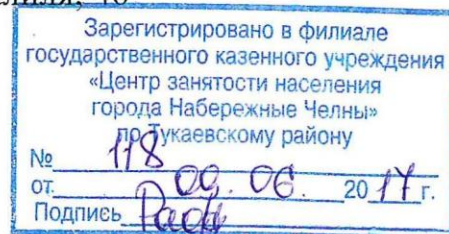 Зарегистрировано в филиале
государственного казенного учреждения
«Центр занятости населения
города Набережные Челны»
по Тукаевскому району
№ 118
от 09.06. 2017 г.
Подпись